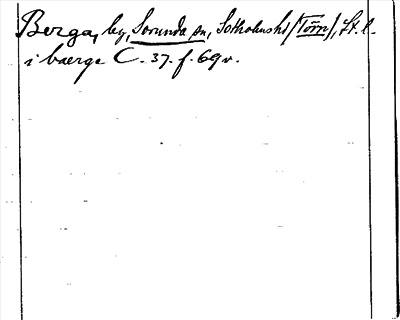 Berga, by, Sorunda sn, Sotholms hd (Törn), St. l.
i baerge C. 37. f. 69 v.